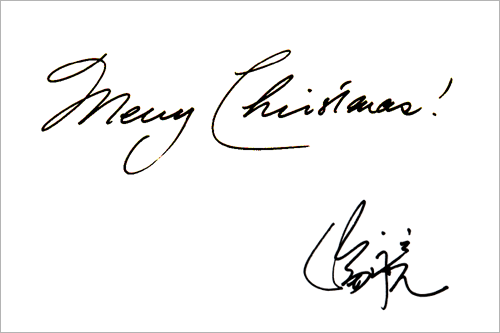 Merry Christmas!